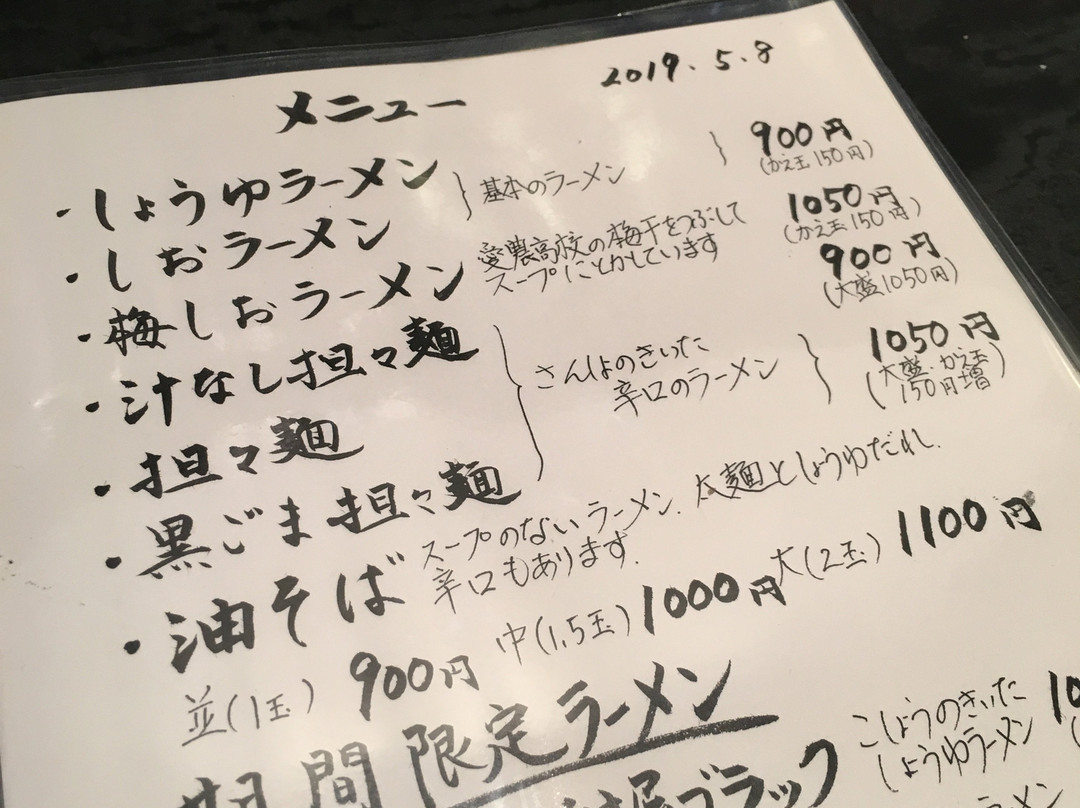 2019.5.8
メニュー
・しょうゆラーメン
・しおラーメン
基本のラーメン
900円
(かえ玉150円)
・梅しおラーメン
愛農高校の梅干をつぶして
スープにとかしています
1050円
(かえ玉150円)
・汁なし担々麺
900円
(大盛1050円)
・担々麺
・黒ごま担々麺
さんしょのきいた
辛口のラーメン
1050円
(大盛.かえ玉
150円増)
・油そば
スープのないラーメン.太麺としょうゆだれ.
辛口もあります.
並(1玉) 900円 中(1.5玉) 1000円 大(2玉) 1100円
期間限定ラーメン
ブラック
こしょうのきいた
しょうゆラーメン